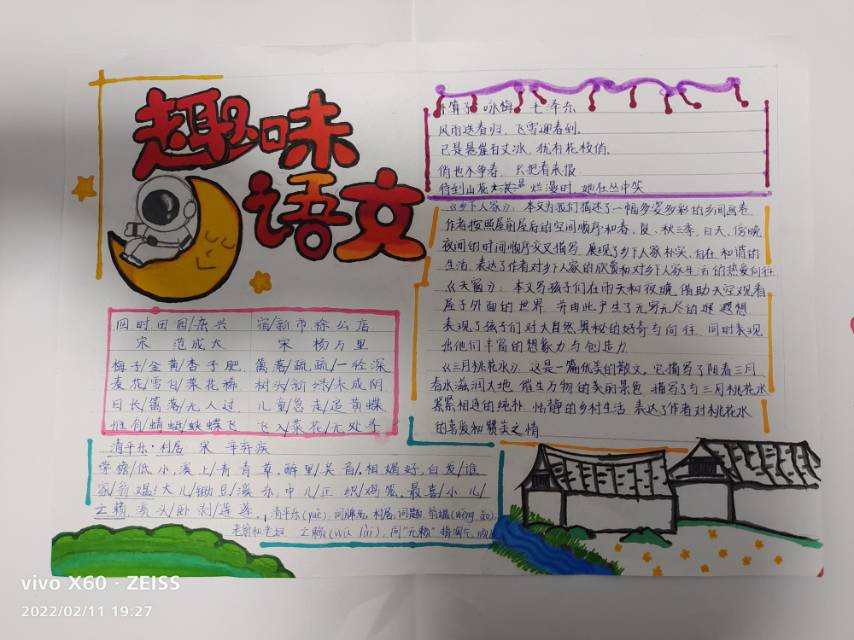 趣味
语文
卜算子 咏梅 毛泽东
风雨送春归，飞雪迎春到。
已是悬崖百丈冰，犹有花枝俏。
俏也不争春，只把春来报
待到山花 烂漫时，她在丛中笑
《乡下人家》：本文为我们描述了一幅多姿多彩的乡间画卷
作者按照屋前屋后的空间顺序和春、夏、秋三季，白天、傍晚
夜间的时间顺序交叉描写，展现了乡下人家朴实、自在和谐的
生活，表达了作者对乡下人家的欣赏和对乡下人家生活的热爱向往
《天窗》：本文写孩子们在雨天和夜晚，借助天空观看
屋子外面的世界 并由此产生了无穷无尽的 遐想
表现了孩子们对大自然奥秘的好奇与向往，同时表现
出他们丰富的想象力与创造力
《三月桃花水》：这是一篇优美的散文，它描写了阳春三月
春水滋润大地 催生万物的美丽景色 描写了与三月桃花水
紧紧相连的纯朴 恬静的乡村生活 表达了作者对桃花水
的喜爱和赞美之情
四时田园/杂兴 宿/新市徐公店
宋 范成大 宋 杨万里
梅子/金黄/杏子肥 篱落/疏疏/一径深
麦花/雪白/菜花稀 树头/新绿/未成阴
日长/篱落/无人过 儿童/急走/追黄蝶
惟有/蜻蜓/蛱蝶飞 飞入/菜花/无处寻
清平乐·村居 宋 辛弃疾
茅檐/低小，溪上/青青草，醉里/吴音/相媚好，白发/谁
家/翁媪？大儿/锄豆/溪东，中儿/正织/鸡笼，最喜/小儿/
亡赖，溪头/卧剥/莲蓬。，清平乐(yuè)，词牌名，村居，词题，翁媪(wēng ǎo)，
老翁和老妪 亡赖(wú lài)，同“无赖”指淘气，
vivo X60 · ZEISS
2022/02/11 19:27